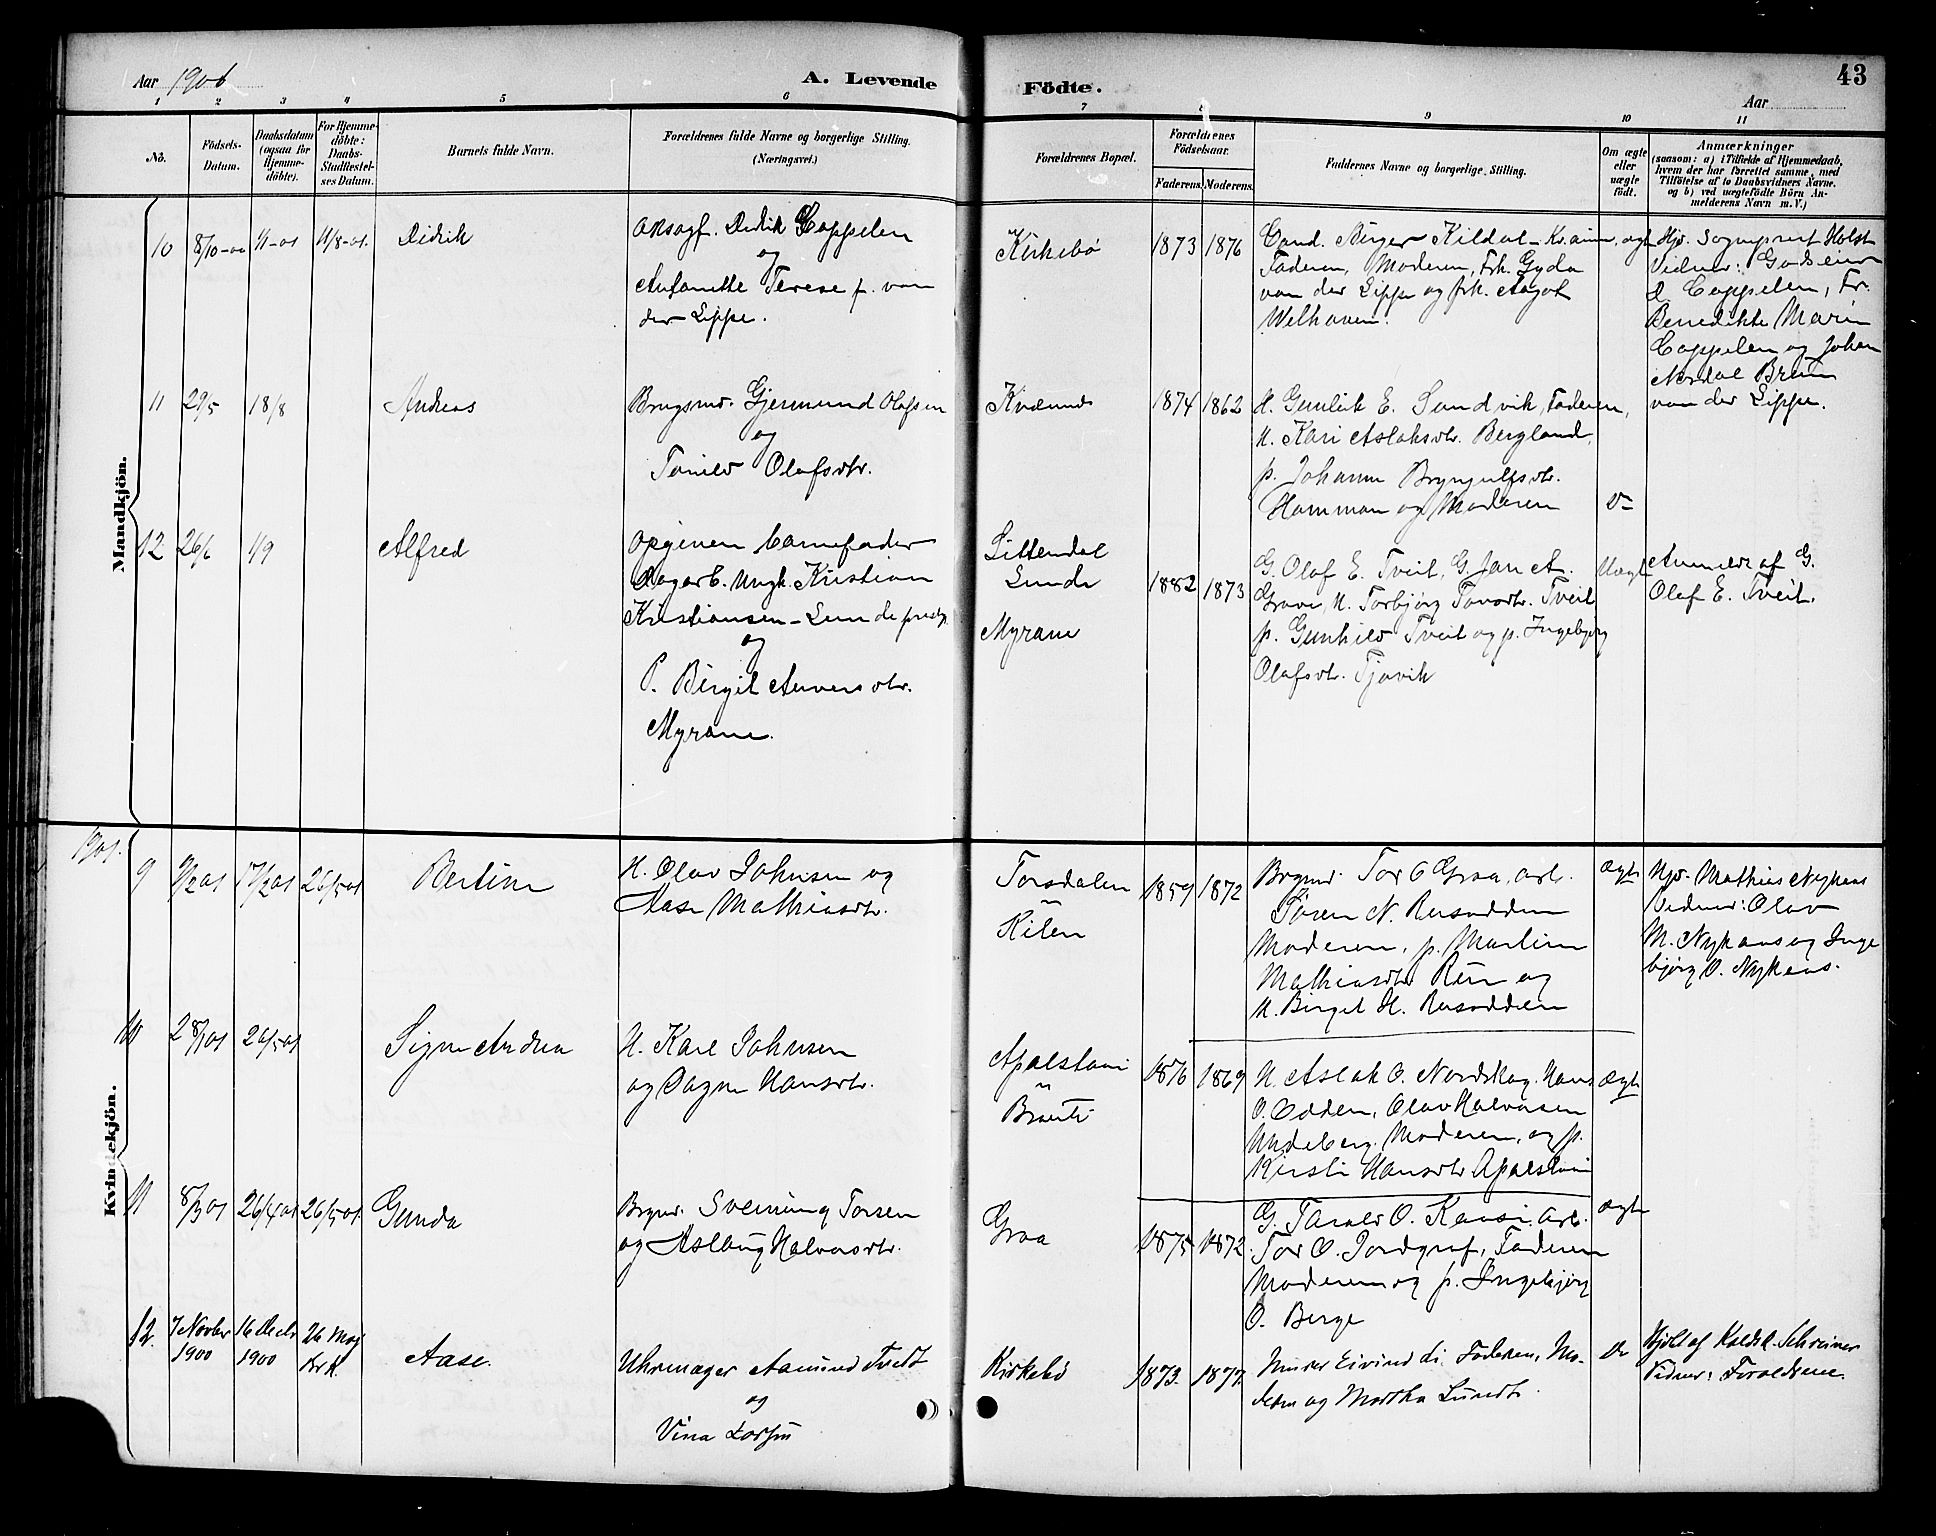 Aar 1901
A. Levende
Födte.
Aar
43
1 2 3 4 5 6 7 8 9 10 11
No.
Födsels-Datum.
Daabsdatum (ogsaa for Hjemme-döbte).
For Hjemme-döbte: Daabs-Stadfæstel-ses Datum.
Barnets fulde Navn.
Forældrenes fulde Navne og borgerlige Stilling. (Næringsvei.)
Forældrenes Bopæl.
Forældrenes Födselsaar.
Faderens. Moderens.
Faddernes Navne og borgerlige Stilling.
Om ægte eller uægte födt.
Anmærkninger
(saasom: a) i Tilfælde af Hjemmedaab,
hvem der har forrettet samme, med
Tilföielse af to Daabsvidners Navne.
og b) ved uægtefödte Börn An-
melderens Navn m. V.)
Mandkjön.
10 8/10-00 11-01 11/8-01. Didrik
Oksagf. Didrik Cappelen
og
Antonette Terese f. van
der Lippe.
Kirkebø 1873 1876
Cand. Birger Kildal - Kr.ania,
Faderen, Moderen, Frk. Gyda
van der Lippe og frk. Aagot
Welhaven.
ægte
Hjd. Sogneprest Holst
Vidner: Godseier
D. Cappelen, Fr.
Benedikte Marie
Cappelen og Johan
Nordal Brun
van der Lippe.
11 29/5 18/8 Andreas
Brugsmd. Gjermund Olafsen
og
Tonild Olafsdtr.
Kvænnd 1874 1862
H. Gunleik E. Sundvik, Faderen,
H. Kari Aslaksdtr. Bergland,
p. Johanne Bryngulfsdtr.
Hamman og Moderen
D-
12 26/6 1/9 Alfred
Opgiven barnefader
Dagarb. Ungk. Kristian
Kristiansen - Lunde præstgj.
og
P. Birgit Anversdtr.
Myrane.
Littendal
Lunde
Myrane
1882 1873
G. Olaf E. Tveit, G. Jan A.
Grave, H. Torbjørg Tovsdtr. Tveit
p. Gunhild Tveit og p. Ingebjørg
Olafsdtr. Tjovik
Uægte
Anmeldt af G.
Olaf E. Tveit.
1901.
Kvindekjön.
9 9/2 01 17/2 01 26/5 01 Bertine
H. Olav Johnsen og
Aase Mathiasdtr.
Torsdalen
Kilen
1859 1872
Brgmd. Tor O Graa, arb.
Søren N. Rusodden
Moderen, p. Martine
Mathiasdtr. og
H. Birgit H. Rusodden
ægte
Hjd. Mathias Nykaas
Vidner: Olav
M. Nykaas og Inge
bjørg O. Nykaas.
10 28/1 01 26/5 01 Signe Andrea
H. Karl Johnsen
og Dagne Hansdtr.
Apalstøi
Brauti
1876 1869
H. Aslak O. Nordskog. Hans
O. Odden, Olav Halvorsen
Undeberg. Moderen, og p.
Kirsti Hansdtr. Apalstøi
ægte
11 8/3 01 26/4 01 26/5 01. Gunda
Brgmd. Sveinung Torsen
og Aslaug Halvorsdtr.
Graa 1875 1872
G. Tarald O. Kaasi, arb.
Tor O. Jordgraf, Faderen
Moderen og p. Ingebjørg
O. Berge
ægte
12. 7 Novbr 1900 16 Decbr 1900 26 Maj Kirk. Aase.
Uhrmager Aamund Tvedt
og
Vina Larsen
Kirkebø 1873. 1877.
Murer Eivind di. Faderen, Mo-
deren og Martha Lundt.
Do
Hjdbt af Kaldsk. Schreiner
Vidner: Forældrene.